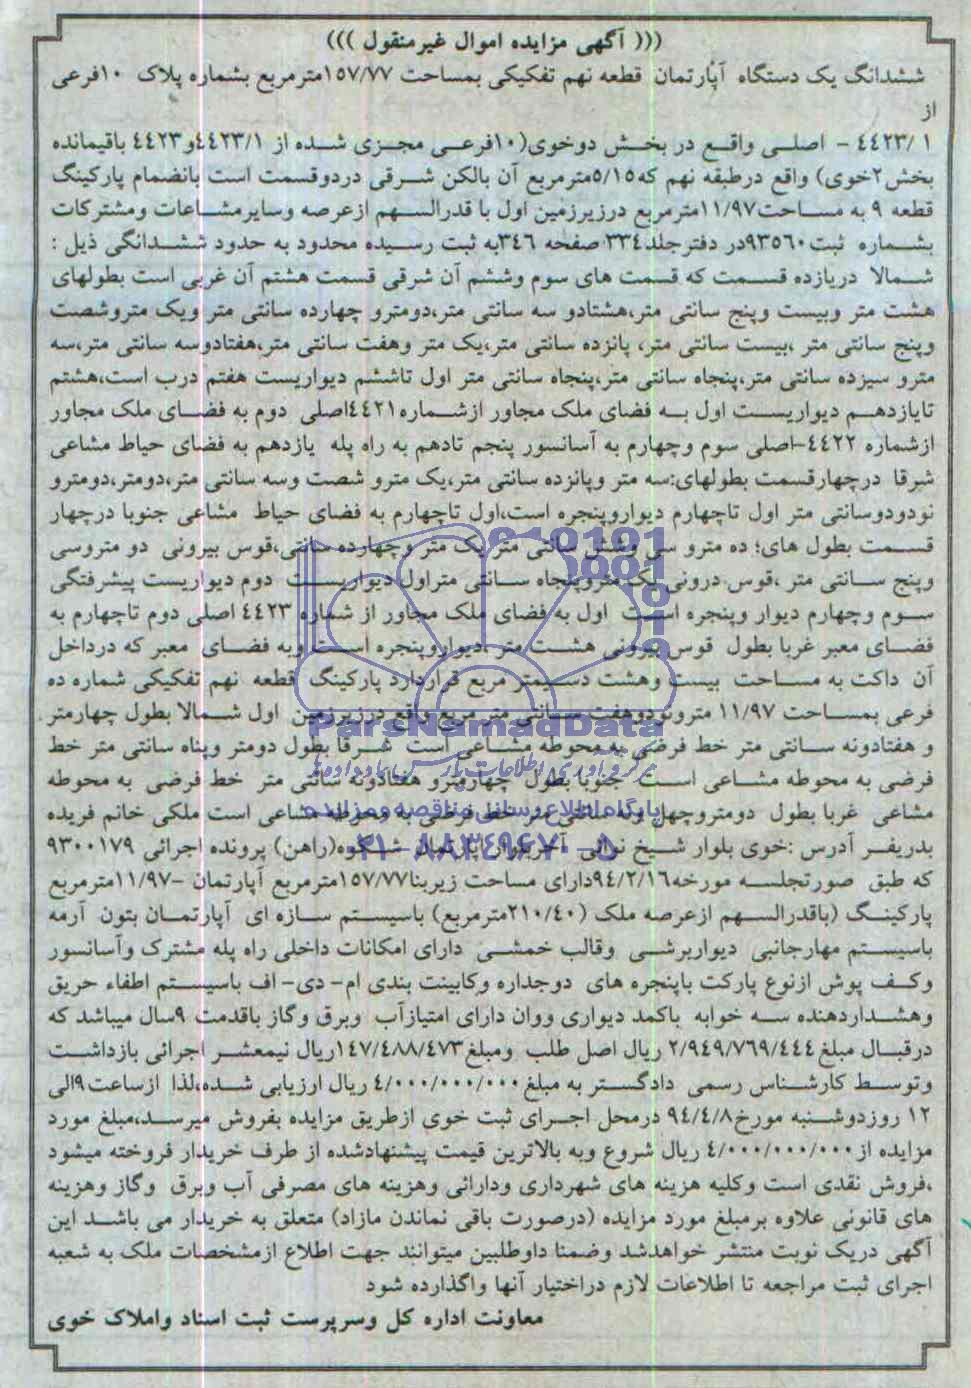 ((( آگهی مزایده اموال غیرمنقول )))
ششدانگ یک دستگاه آپارتمان قطعه نهم تفکیکی بمساحت ۱۵۷/۷۷مترمربع بشماره پلاک ۱۰فرعی از
۴۴۲۳/۱ - اصلی واقع در بخش دوخوی(۱۰فرعی مجزی شده از ۴۴۲۳/۱و۴۴۲۳ باقیمانده
بخش۲خوی) واقع درطبقه نهم که۵/۱۵مترمربع آن بالکن شرقی دردوقسمت است بانضمام پارکینگ
قطعه ۹ به مساحت۱۱/۹۷مترمربع درزیرزمین اول با قدرالسهم ازعرصه وسایرمشاعات ومشترکات
بشماره ثبت۹۳۵۶۰در دفترجلد۳۳۴ صفحه ۳۴۶به ثبت رسیده محدود به حدود ششدانگی ذیل :
شمالا دریازده قسمت که قسمت های سوم وششم آن شرقی قسمت هشتم آن غربی است بطولهای
هشت متر وبیست وپنج سانتی متر،هشتادو سه سانتی متر،دومترو چهارده سانتی متر ویک متروشصت
وپنج سانتی متر ،بیست سانتی متر، پانزده سانتی متر،یک متر وهفت سانتی متر،هفتادوسه سانتی متر،سه
مترو سیزده سانتی متر،پنجاه سانتی متر،پنجاه سانتی متر اول تاششم دیواریست هفتم درب است،هشتم
تایازدهم دیواریست اول به فضای ملک مجاور ازشماره۴۴۲۱اصلی دوم به فضای ملک مجاور
ازشماره ۴۴۲۲-اصلی سوم وچهارم به آسانسور پنجم تادهم به راه پله یازدهم به فضای حیاط مشاعی
شرقا درچهارقسمت بطولهای:سه متر وپانزده سانتی متر،یک مترو شصت وسه سانتی متر،دومتر،دومترو
نودودوسانتی متر اول تاچهارم دیواروپنجره است،اول تاچهارم به فضای حیاط مشاعی جنوبا درچهار
قسمت بطول های؛ ده مترو سی وشش سانتی متر یک متر وچهارده سانتی،قوس بیرونی دو متروسی
وپنج سانتی متر ،قوس درونی یک متروپنجاه سانتی متراول دیواریست دوم دیواریست پیشرفتگی
سوم وچهارم دیوار وپنجره است اول به فضای ملک مجاور از شماره ۴۴۲۳ اصلی دوم تاچهارم به
فضای معبر غربا بطول قوس بیرونی هشت متر ،دیواروپنجره است وبه فضای معبر که درداخل
آن داکت به مساحت بیست وهشت دسیمتر مربع قراردارد پارکینگ قطعه نهم تفکیکی شماره ده
فرعی بمساحت ۱۱/۹۷ مترونودوهفت سانتی متر مربع واقع درزیرزمین اول شمالا بطول چهارمتر
و هفتادونه سانتی متر خط فرضی به محوطه مشاعی است شرقا بطول دومتر وپناه سانتی متر خط
فرضی به محوطه مشاعی است جنوبا بطول چهارمترو هفتادونه سانتی متر خط فرضی به محوطه
مشاعی غربا بطول دومتروچهل ونه سانتی متر خط فرضی به محوطه مشاعی است ملکی خانم فریده
بدریفر آدرس :خوی بلوار شیخ نوائی آخربلوار آپارتمان شکوه(راهن) پرونده اجرائی ۹۳۰۰۱۷۹
که طبق صورتجلسه مورخه۹۴/۲/۱۶دارای مساحت زیربنا۱۵۷/۷۷مترمربع آپارتمان -۱۱/۹۷مترمربع
پارکینگ (باقدرالسهم ازعرصه ملک (۲۱۰/۴۰مترمربع) باسیستم سازه ای آپارتمان بتون آرمه
باسیستم مهارجانبی دیواربرشی وقالب خمشی دارای امکانات داخلی راه پله مشترک وآسانسور
وکف پوش ازنوع پارکت باپنجره های دوجداره وکابینت بندی ام- دی- اف باسیستم اطفاء حریق
وهشداردهنده سه خوابه باکمد دیواری ووان دارای امتیازآب وبرق وگاز باقدمت ۹سال میباشد که
درقبال مبلغ ۲/۹۴۹/۷۶۹/۴۴۴ ریال اصل طلب ومبلغ۱۴۷/۴۸۸/۴۷۳ریال نیمعشر اجرائی بازداشت
وتوسط کارشناس رسمی دادگستر به مبلغ ۴/۰۰۰/۰۰۰/۰۰۰ ریال ارزیابی شده،لذا ازساعت۹الی
۱۲ روزدوشنبه مورخ۹۴/۴/۸ درمحل اجرای ثبت خوی ازطریق مزایده بفروش میرسد،مبلغ مورد
مزایده از ۴/۰۰۰/۰۰۰/۰۰۰ ریال شروع وبه بالاترین قیمت پیشنهادشده از طرف خریدار فروخته میشود
،فروش نقدی است وکلیه هزینه های شهرداری ودارائی وهزینه های مصرفی آب وبرق وگاز وهزینه
های قانونی علاوه برمبلغ مورد مزایده (درصورت باقی نماندن مازاد) متعلق به خریدار می باشد این
آگهی دریک نوبت منتشر خواهدشد وضمنا داوطلبین میتوانند جهت اطلاع ازمشخصات ملک به شعبه
اجرای ثبت مراجعه تا اطلاعات لازم دراختیار آنها واگذارده شود
معاونت اداره کل وسرپرست ثبت اسناد واملاک خوی
ParsNamadData
پایگاه اطلاع رسانی مناقصه و مزایده
۰۲۱-۸۸۳۴۹۶۷۰-۵